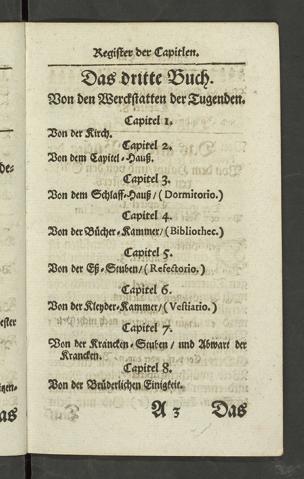 Register der Capitlen.
Das dritte Buch.
Von den Werckstatten der Tugenden.
Capitel 1.
Von der Kirch.
Capitel 2.
Von dem Capitel-Hauß.
Capitel 3.
Von dem Schlaff-Hauß/(Dormitorio.)
Capitel 4.
Von der Bücher-Kammer/(Bibliothec.)
Capitel 5.
Von der Eß-Stuben/(Refectorio.)
Capitel 6.
Von der Kleyder-Kammer/(Vestiario.)
Capitel 7.
Von der Krancken-Stuben / und Abwart der
Krancken.
Capitel 8.
Von der Brüderlichen Einigkeit.
A 3 Das